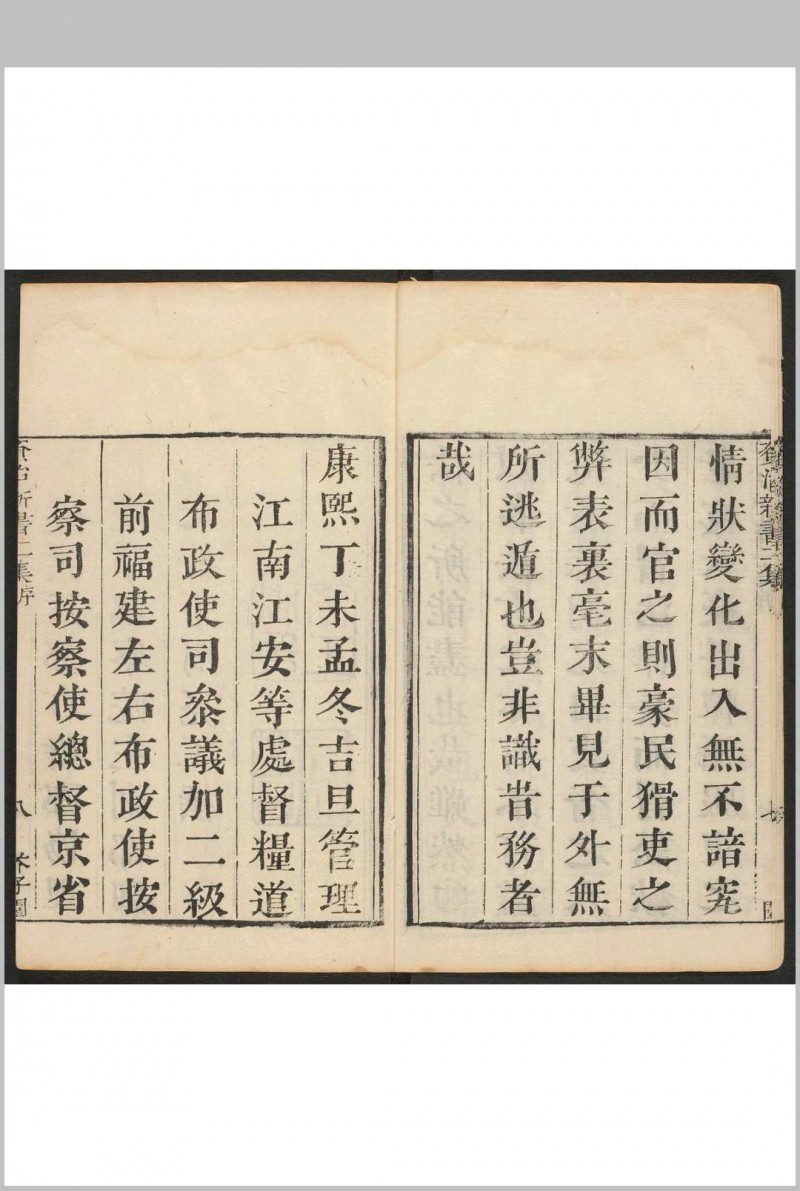 資治新書二集
七
情狀變化出入無不諳究
因而官之則豪民猾吏之
弊表裏毫末畢見于外無
所逃遁也豈非識昔務者
哉
康熙丁未孟冬吉旦管理
江南江安等處督糧道
布政使司叅議加二級
前福建左右布政使按
察司按察使總督京省
資治新書二集序
八
芥子園